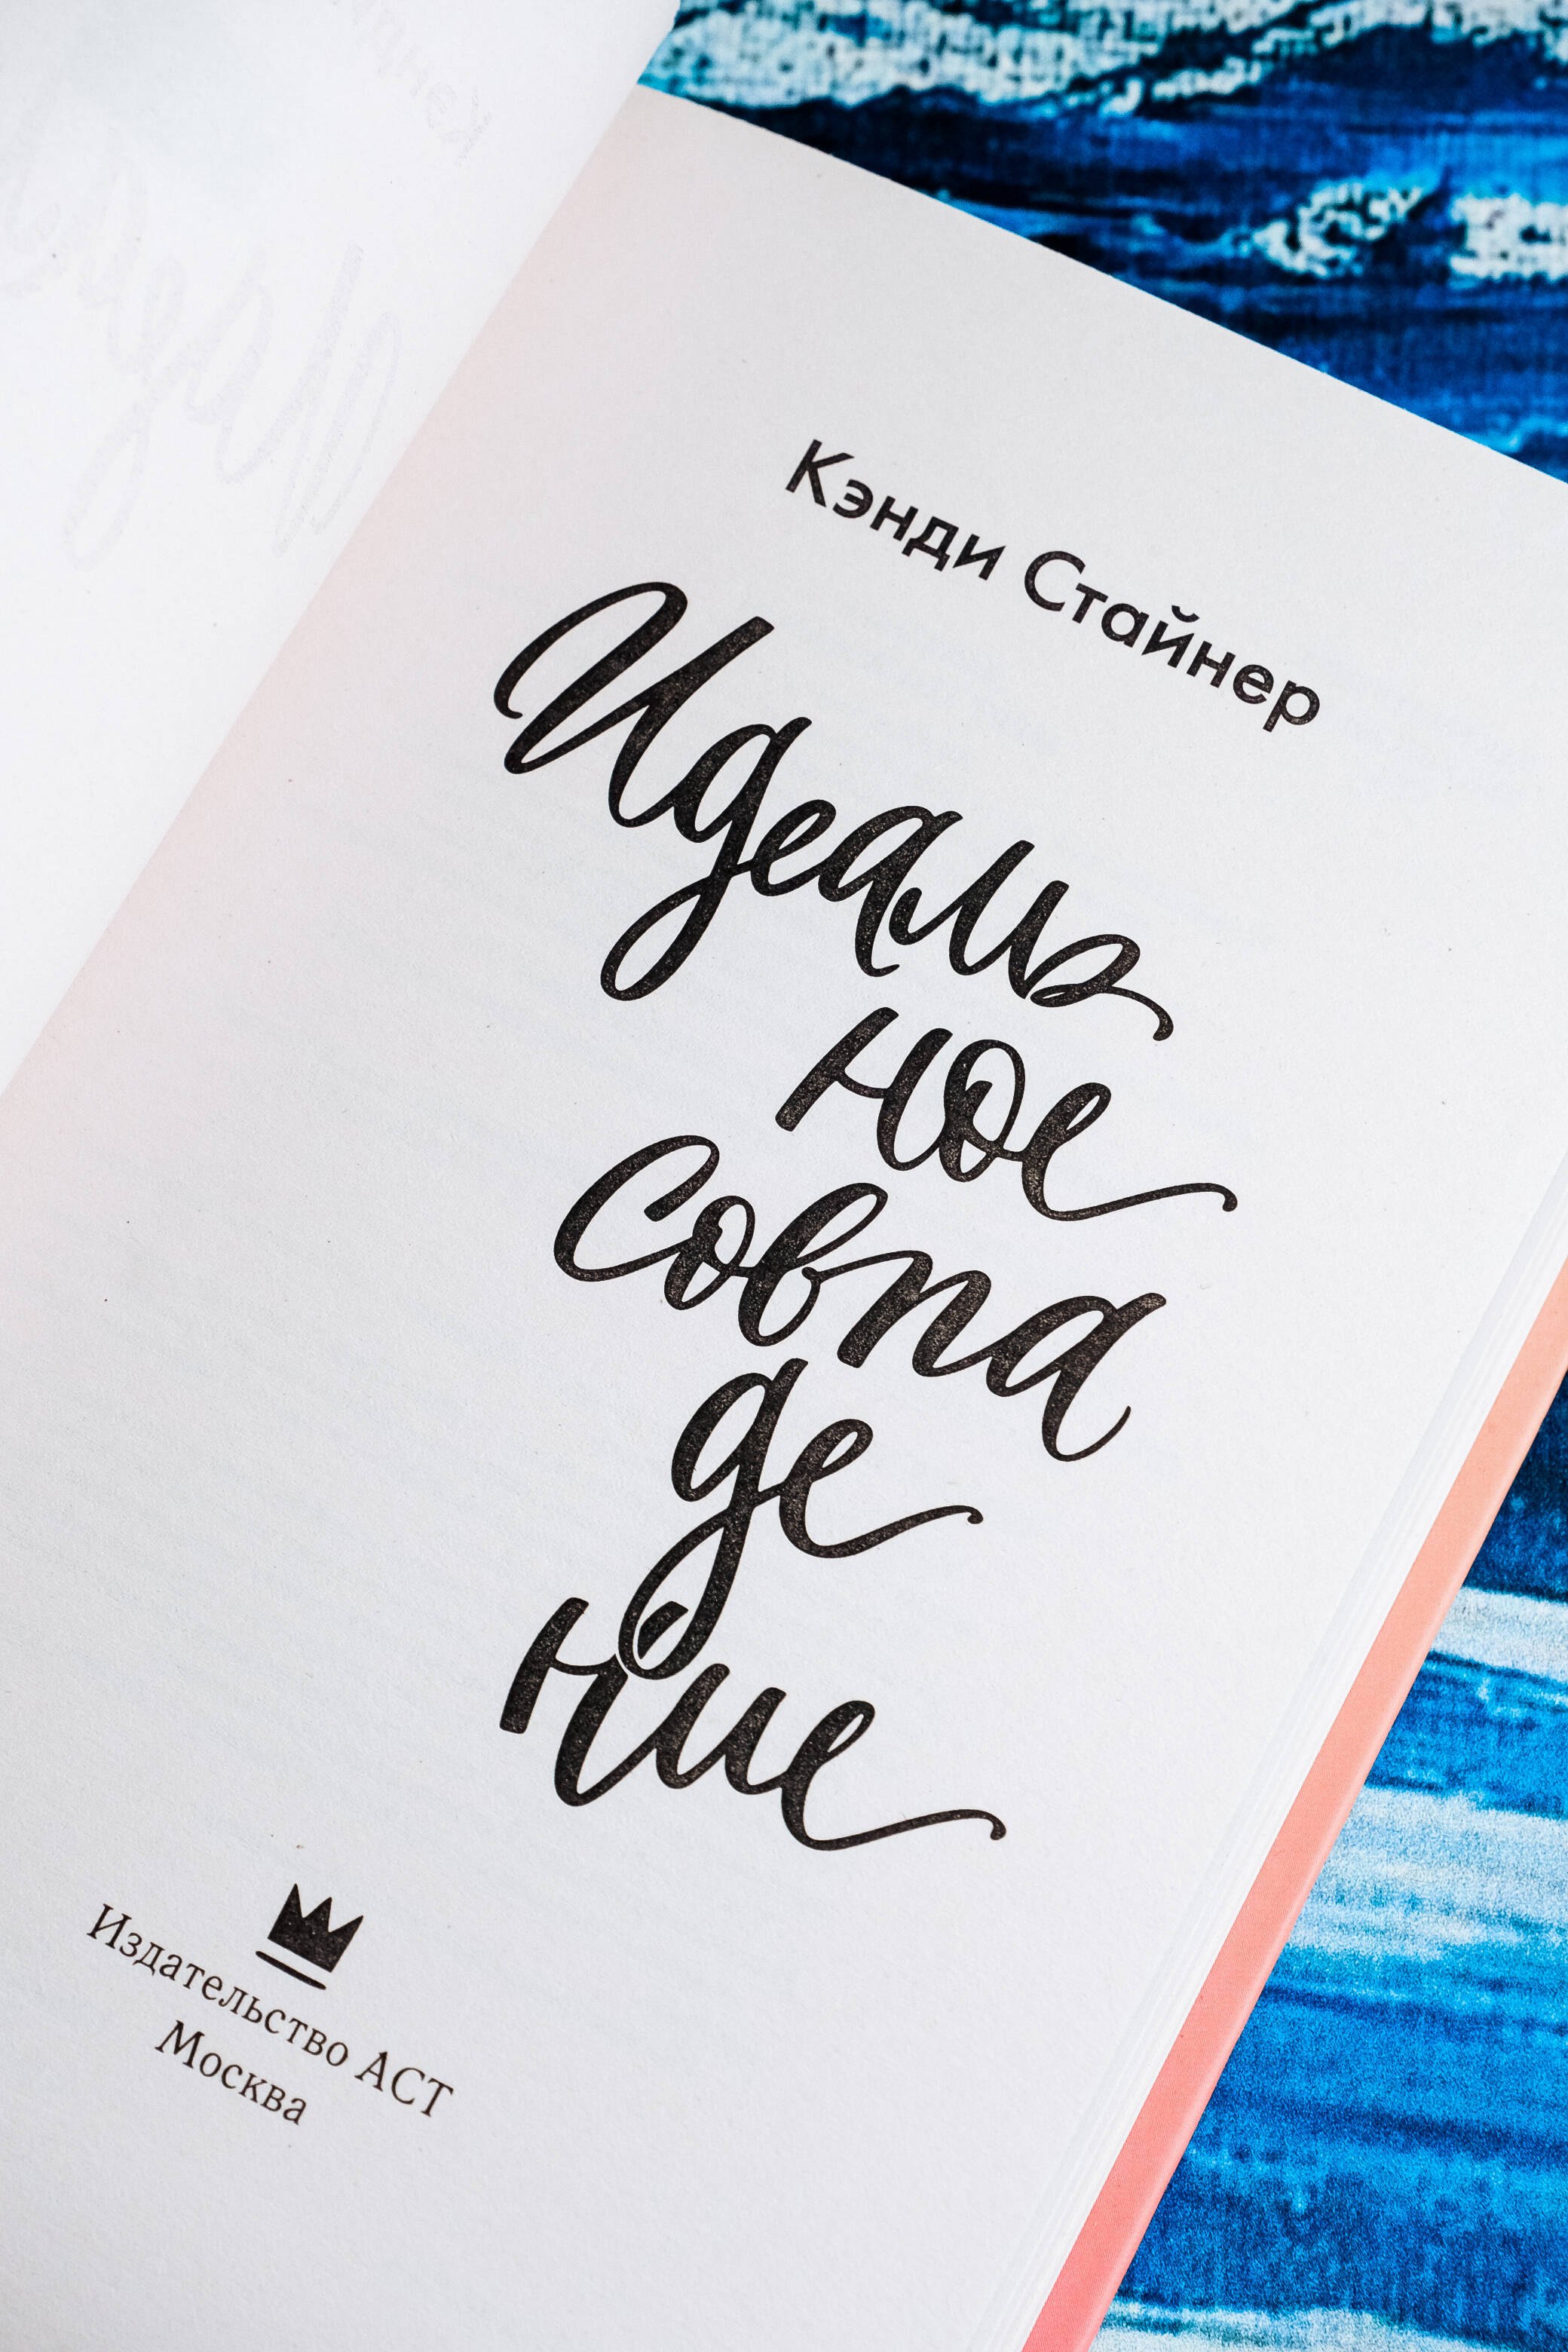 Кэнди Стайнер
Идеаль
ное
совпа
де
ние
Издательство АСТ
Москва